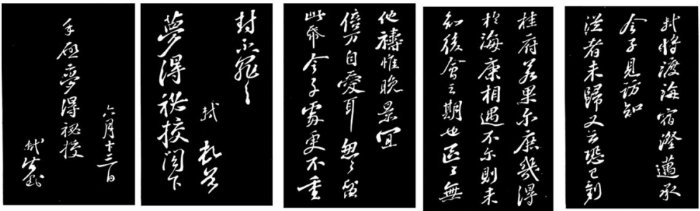 軾將渡海宿澄邁承
令子見訪知
從者未歸又云恐已到
桂府若果尔庶幾得
於海康相遇不尔則未
知後會之期也區々無
他禱惟晚景宜
倍万自愛耳忽々留
此帋令子處更不重
封不罪々
軾 頓首
夢得祕校閣下
六月十三日
手啟夢得祕校
軾封